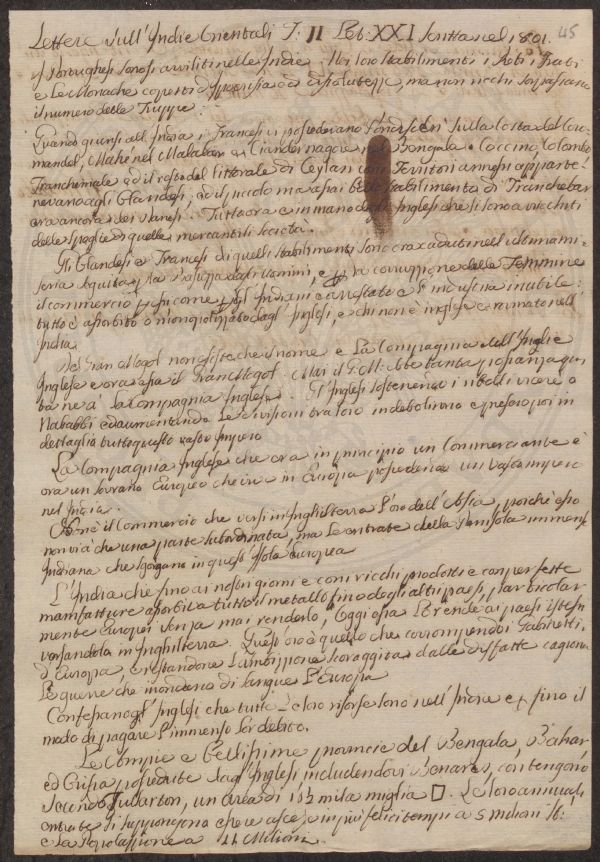 Lettere sull'Indie Orientali T. II Let. XXI scritta nel 1801. 45
I Portughesi sono avviliti nelle Indie. Ivi loro stabilimenti i Preti i Frati
e le Monache coperti d'ipocrisia e di dissolutezze, ma non ricchi sorpassano
il numero delle Truppe.
Quando giunsi all'India i Francesi vi possedevano Pondiseri sulla Costa del Coro-
mandel, Mahe nel Malabar e Ciandernagor nel Bengala. Coccino Colombo
Tranchimale ed il resto del littorale di Ceylan con Territori annessi apparte-
nevano agli Olandesi, ed il piccolo ma assai bello stabilimento di Tranchebar
era ancora dei Danesi. Tutto ora è in mano degli Inglesi che si sono arricchiti
delle spoglie di quelle mercantili società.
Gli Olandesi e Francesi di quelli stabilimenti sono ora caduti nell'ultima mi-
seria seguita per la bassezza degli uomini, e per la corruzzione delle Femmine
il commercio per se come per gl'Indiani è arrestato e l'industria inutile:
tutto è assorbito o monopolizzato dagl'Inglesi, e chi non è inglese è rovinato nell'
India.
Del Gran Mogol non esiste che il nome e la Compagnia dell'Indie
Inglese è ora essa il Gran Mogol. Mai il Mogol ebbe tanta possanza quan-
ta ne à la Compagnia Inglese. Gl'Inglesi sostenendo i ribelli vicere o
Nababbi ed aumentando le divisioni tra loro indebolirono e presero poi in
dettaglio tutto questo vasto Impero
La Compagnia Inglese che era in principio un Commerciante è
ora un sovrano Europeo che vive in Europa possedendo un vasto impero
nel India.
Non è il Commercio che versi in Inghilterra l'oro dell'Asia, poiche esso
non và che una parte subordinata, ma le entrate della Penisola immensa
Indiana che sgorgano in quest'Isola Europea
L'India che fino ai nostri giorni e con i ricchi prodotti e con perfette
manifatture assorbiva tutto il metallo fino degli altri paesi, particolar-
mente Europei senza mai renderlo, oggi essa lo rende ai paesi istessi
versandolo in Inghilterra. Quest'oro è quello che corrompendo i Gabinetti
d'Europa, e restandone l'ambizzione scoraggita dalle disfatte cagiona
le guerre che inondano di sangue l'Europa
Confessano gl'Inglesi che tutte le loro risorse sono nell'India e per fino il
modo di pagare l'immenso lor debito.
Le Ampie e bellissime provincie del Bengala, Bahar
ed Orissa possedute dagl'Inglesi includendovi Benares, contengono
secondo Fullarton, un area di 162 mila miglia □. Le loro annuali
entrate si suppongono essere ascese in più felici tempi a 5 milioni st:
e la Popolazione a 11 Milioni.